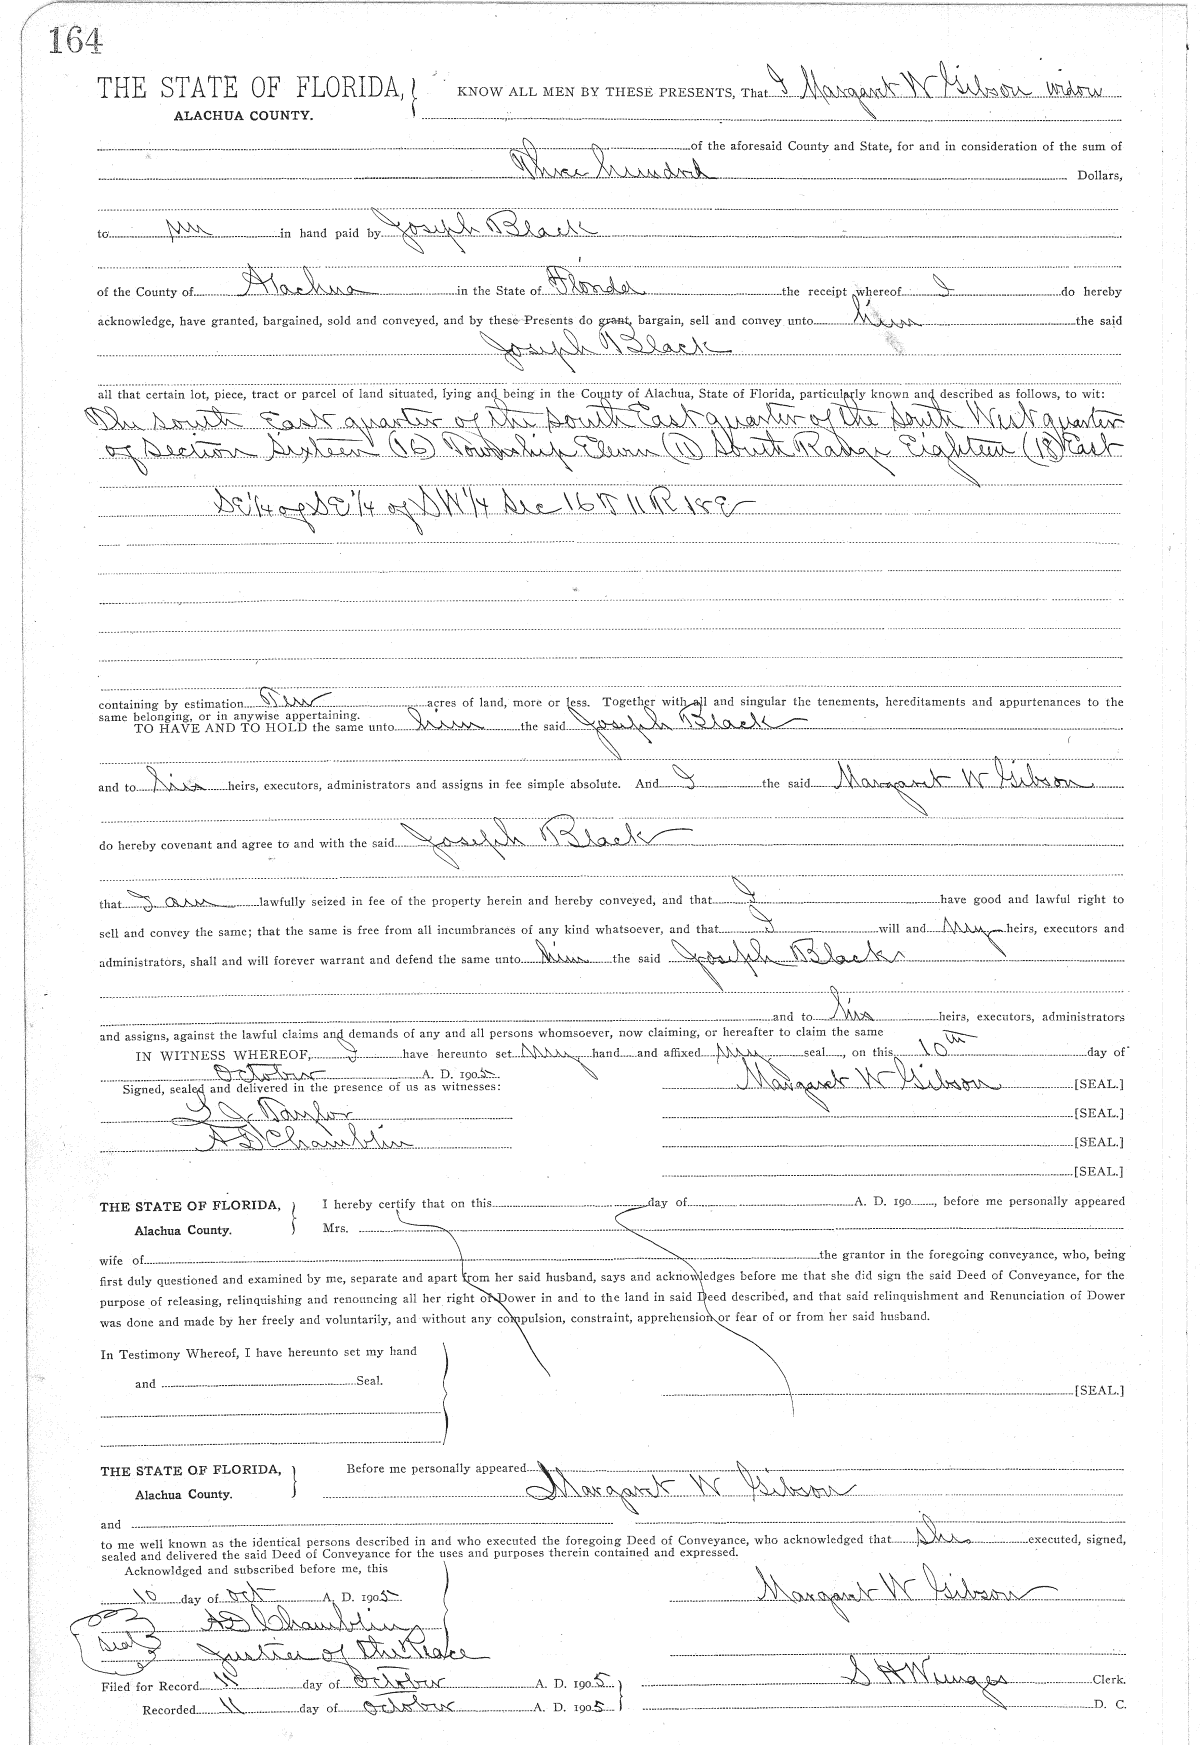 164
THE STATE OF FLORIDA, KNOW ALL MEN BY THESE PRESENTS, That I Margaret W Gibson widow
ALACHUA COUNTY.
of the aforesaid County and State, for and in consideration of the sum of
Three hundred Dollars,
to me in hand paid by Joseph Black
of the County of Alachua in the State of Florida the receipt whereof I do hereby
acknowledge, have granted, bargained, sold and conveyed, and by these Presents do grant, bargain, sell and convey unto him the said
Joseph Black
all that certain lot, piece, tract or parcel of land situated, lying and being in the County of Alachua, State of Florida, particularly known and described as follows, to wit:
The South East quarter of the South East quarter of the South West quarter
of Section Sixteen (16) Township Eleven (11) South Range Eighteen (18) East
SE 1/4 of SE 1/4 of SW 1/4 Sec 16 T 11 R 18 E
containing by estimation Ten acres of land, more or less. Together with all and singular the tenements, hereditaments and appurtenances to the
same belonging, or in anywise appertaining.
TO HAVE AND TO HOLD the same unto him the said Joseph Black
and to his heirs, executors, administrators and assigns in fee simple absolute. And I the said Margaret W Gibson
do hereby covenant and agree to and with the said Joseph Black
that I am lawfully seized in fee of the property herein and hereby conveyed, and that I have good and lawful right to
sell and convey the same; that the same is free from all incumbrances of any kind whatsoever, and that I will and my heirs, executors and
administrators, shall and will forever warrant and defend the same unto him the said Joseph Black
and to his heirs, executors, administrators
and assigns, against the lawful claims and demands of any and all persons whomsoever, now claiming, or hereafter to claim the same
IN WITNESS WHEREOF, I have hereunto set my hand and affixed my seal, on this 10th day of
October A. D. 1905
Signed, sealed and delivered in the presence of us as witnesses: Margaret W Gibson [SEAL.]
L J Taylor [SEAL.]
A D Chamblin [SEAL.]
[SEAL.]
THE STATE OF FLORIDA, I hereby certify that on this day of A. D. 190 , before me personally appeared
Alachua County. Mrs.
wife of the grantor in the foregoing conveyance, who, being
first duly questioned and examined by me, separate and apart from her said husband, says and acknowledges before me that she did sign the said Deed of Conveyance, for the
purpose of releasing, relinquishing and renouncing all her right of Dower in and to the land in said Deed described, and that said relinquishment and Renunciation of Dower
was done and made by her freely and voluntarily, and without any compulsion, constraint, apprehension or fear of or from her said husband.
In Testimony Whereof, I have hereunto set my hand
and Seal. [SEAL.]
THE STATE OF FLORIDA, Before me personally appeared
Alachua County. Margaret W Gibson
and
to me well known as the identical persons described in and who executed the foregoing Deed of Conveyance, who acknowledged that she executed, signed,
sealed and delivered the said Deed of Conveyance for the uses and purposes therein contained and expressed.
Acknowldged and subscribed before me, this
10 day of Oct A. D. 1905 Margaret W Gibson
A D Chamblin
Seal Justice of the Peace
Filed for Record 11 day of October A. D. 1905 S H Wienges Clerk.
Recorded 11 day of October A. D. 1905 D. C.